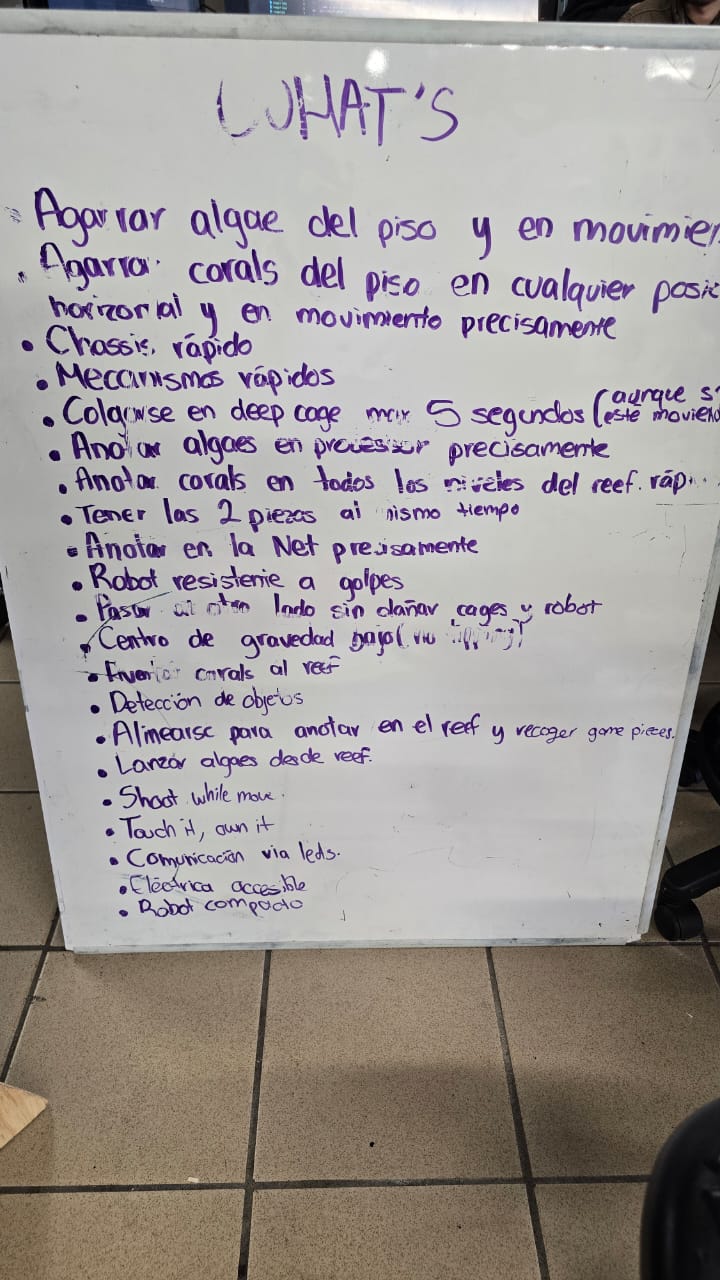 WHAT'S
Agarrar algae del piso y en movimien
Agarrar corals del piso en cualquier posic
horizontal y en movimiento precisamente
Chassis rápido
Mecanismos rápidos
Colgarse en deep cage max 5 segundos (aunque s
este moviend
Anotar algaes en processor precisamente
Anotar corals en todos los niveles del reef. ráp
Tener las 2 piezas al mismo tiempo
Anotar en la Net precisamente
Robot resistente a golpes
Pasar al otro lado sin dañar cages y robot
Centro de gravedad bajo (no tipping)
corals al reef
Detección de objetos
Alinearse para anotar en el reef y recoger game pieces.
Lanzar algaes desde reef.
Shoot while move.
Touch it, own it
Comunicación via leds.
Eléctrica accesible
Robot compacto